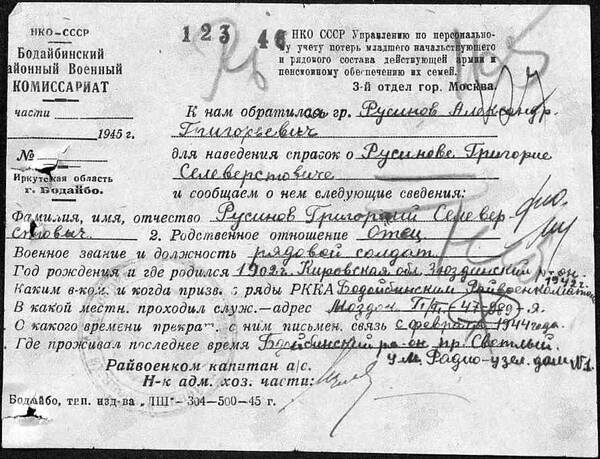 НКО—СССР
Бодайбинский
айонный Военный
КОМИССАРИАТ
части
1945 г.
№
Иркутская область
г. Бодайбо.
123 46
НКО СССР Управлению по персонально-
у учету потерь младшего начальствующего
и рядового состава действующей армии и
пенсионному обеспечению их семей.
3-й отдел гор. Москва.
К нам обратился гр. Русинов Александр
Григорьевич
для наведения справок о Русинове Григорие
Селеверстовиче
и сообщаем о нем следующие сведения:
Фамилия, имя, отчество Русинов Григорий Селевер
стовыч. 2. Родственное отношение Отец
Военное звание и должность рядовой солдат
Год рождения и где родился 1902г. Кировская обл. Зюздинский р-он
Каким в-ком. и когда призв. в ряды РККА Бодойбинским Райвоенкоматом 1942г.
В какой местн. проходил служ.—адрес Моздок П/П 47-989-я.
С какого времени прекрат. с ним письмен. связь с февраля 1944 года.
Где проживал последнее время Бодойбинский ра-он пр. Светлый
ул. Радио-узел. дом №1.
Райвоенком капитан а/с.
Н-к адм. хоз. части:
Бодайбо, тип. изд-ва „ЛШ"—304—500—45 г.